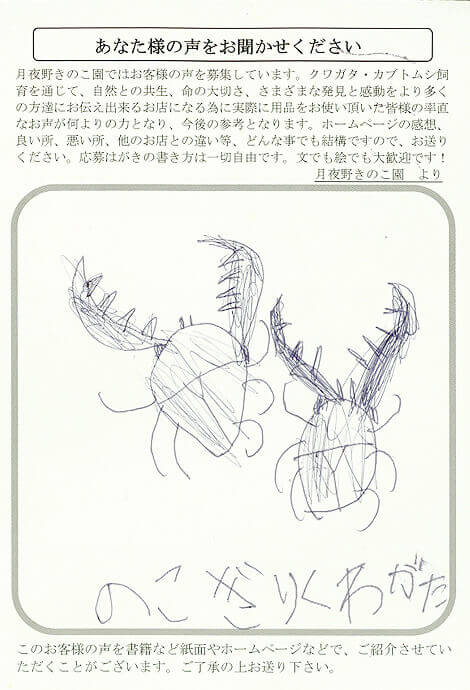 あなた様の声をお聞かせください
月夜野きのこ園ではお客様の声を募集しています。クワガタ・カブトムシ飼
育を通じて、自然との共生、命の大切さ、さまざまな発見と感動をより多く
の方達にお伝え出来るお店になる為に実際に用品をお使い頂いた皆様の率直
なお声が何よりの力となり、今後の参考となります。ホームページの感想、
良い所、悪い所、他のお店との違い等、どんな事でも結構ですので、お送り
ください。応募はがきの書き方は一切自由です。文でも絵でも大歓迎です！
月夜野きのこ園　より
のこぎりくわがた
このお客様の声を書籍など紙面やホームページなどで、ご紹介させてい
ただくことがございます。ご了承の上お送り下さい。